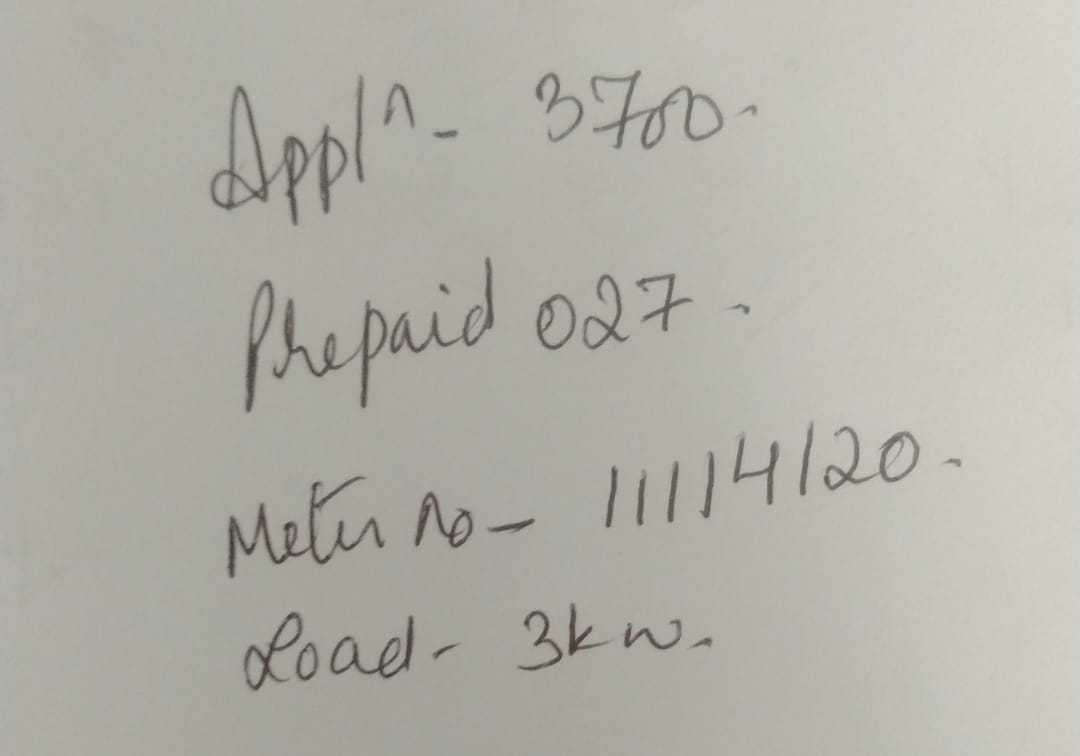 Appl^n - 3700.
Prepaid 027.
Meter no - 11114120.
Load - 3kw.